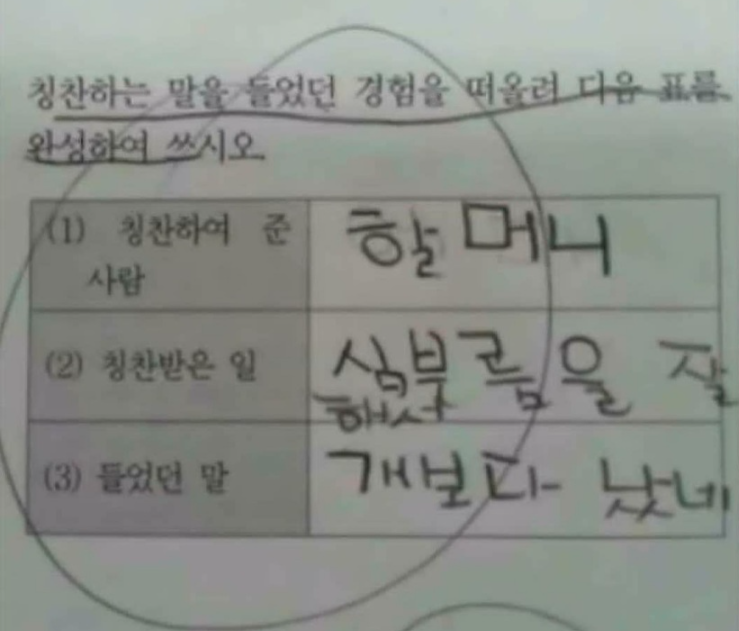 칭찬하는 말을 들었던 경험을 떠올려 다음 표를
완성하여 쓰시오.
(1) 칭찬하여 준
사람
할머니
(2) 칭찬받은 일
심부름을 잘
했다
(3) 들었던 말
개보다 낫네